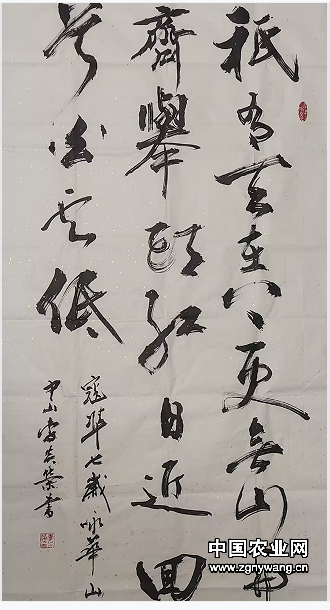 祇有天在上更無山與
齊舉頭紅日近回
首白雲低
寇準七歲咏華山
中山榮書
中国农业网
www.zgnywang.cn